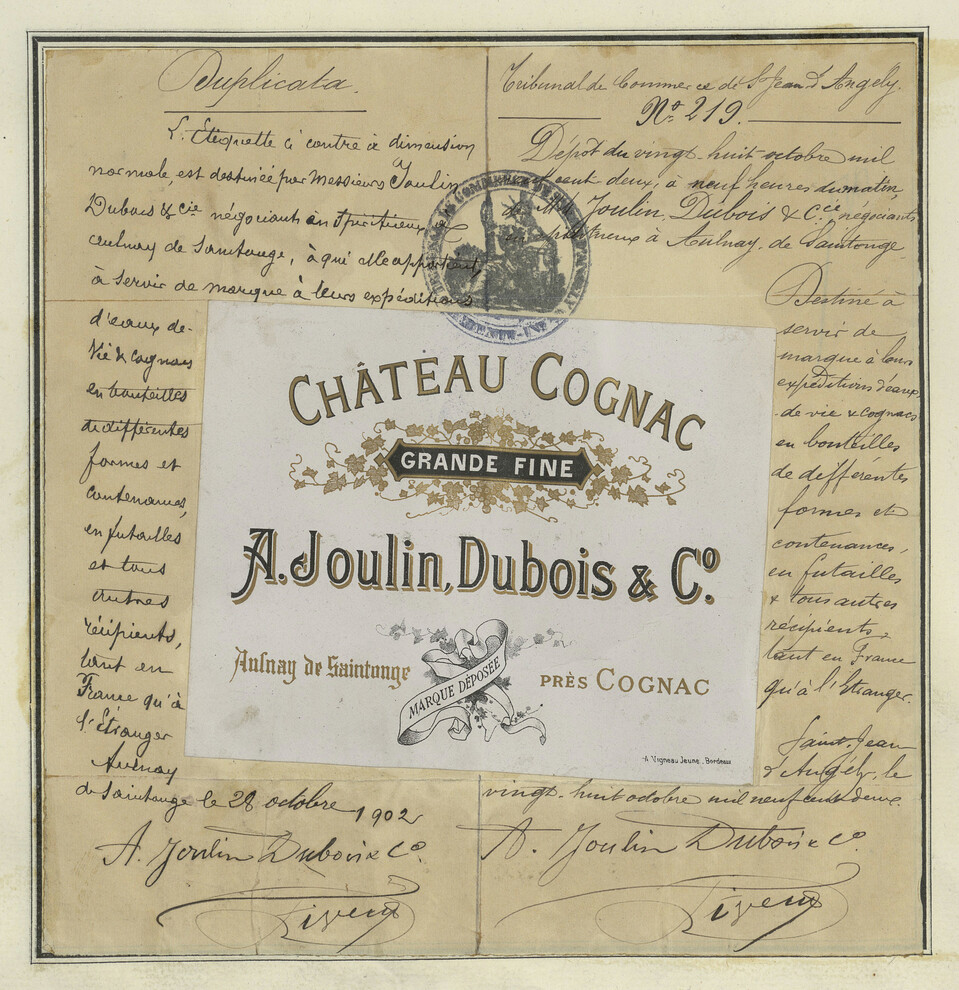 Duplicata.
L'Etiquette ci contre à dimension
normale, est destinée par Messieurs Joulin
Dubois & cie négociant en spiritueux
aulnay de Saintonge, à qui elle appartient,
à servir de marque à leurs expéditions
d'eaux de-
vie & cognacs
en bouteilles
de différentes
formes et
contenances,
en futailles
et tous
autres
récipients,
tant en
France qu'à
l'Étranger
Aulnay
de Saintonge le 28 octobre 1902
A. Joulin Dubois & Co.
Tribunal de Commerce de St Jean d'Angely.
No. 219.
Dépot du vingt-huit octobre mil
cent deux, à neuf heures du matin,
de M Joulin, Dubois & Cie négociants
en spiritueux à Aulnay-de Saintonge
Destiné à
servir de
marque à leurs
expéditions d'eaux
de vie & cognacs
en bouteilles
de différentes
formes et
contenances,
en futailles
& tous autres
récipients,
tant en France
qu'à l'Etranger.
Saint-Jean
d'Angély, le
vingt-huit octobre mil neuf cent deux.
A. Joulin Dubois & Co.
CHÂTEAU COGNAC
GRANDE FINE
A. Joulin, Dubois & Co.
Aulnay de Saintonge
MARQUE DÉPOSÉE
PRÈS COGNAC
A. Vigneau Jeune, Bordeaux